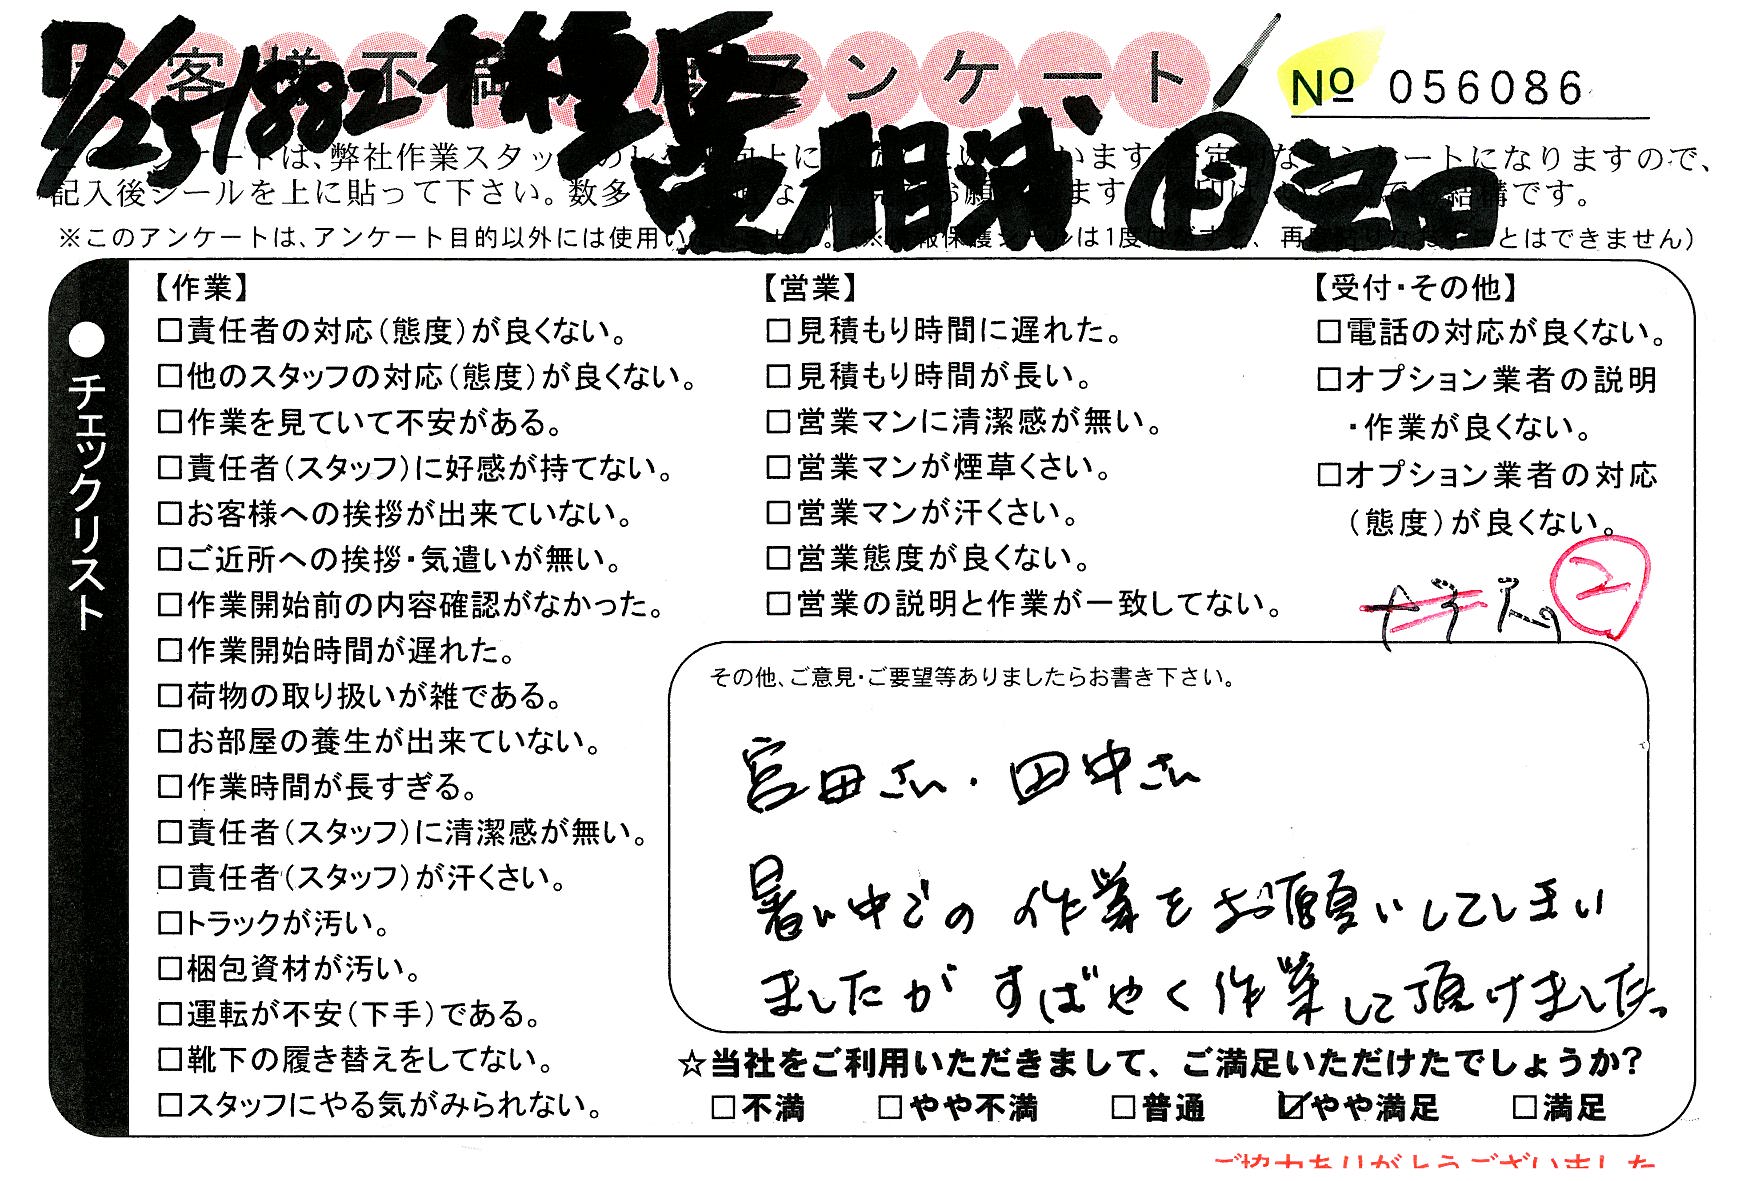 アンケート
No 056086
※このアンケートは、アンケート目的以外には使用い
とはできません）
●チェックリスト
【作業】
□責任者の対応（態度）が良くない。
□他のスタッフの対応（態度）が良くない。
□作業を見ていて不安がある。
□責任者（スタッフ）に好感が持てない。
□お客様への挨拶が出来ていない。
□ご近所への挨拶・気遣いが無い。
□作業開始前の内容確認がなかった。
□作業開始時間が遅れた。
□荷物の取り扱いが雑である。
□お部屋の養生が出来ていない。
□作業時間が長すぎる。
□責任者（スタッフ）に清潔感が無い。
□責任者（スタッフ）が汗くさい。
□トラックが汚い。
□梱包資材が汚い。
□運転が不安（下手）である。
□靴下の履き替えをしてない。
□スタッフにやる気がみられない。
【営業】
□見積もり時間に遅れた。
□見積もり時間が長い。
□営業マンに清潔感が無い。
□営業マンが煙草くさい。
□営業マンが汗くさい。
□営業態度が良くない。
□営業の説明と作業が一致してない。
【受付・その他】
□電話の対応が良くない。
□オプション業者の説明
・作業が良くない。
□オプション業者の対応
（態度）が良くない。
その他、ご意見・ご要望等ありましたらお書き下さい。
宮田さん・田中さん
暑い中での作業をお願いしてしまい
ましたが すばやく作業して頂けました。
☆当社をご利用いただきまして、ご満足いただけたでしょうか？
□不満 □やや不満 □普通 ☑やや満足 □満足
ご協力ありがとうございました